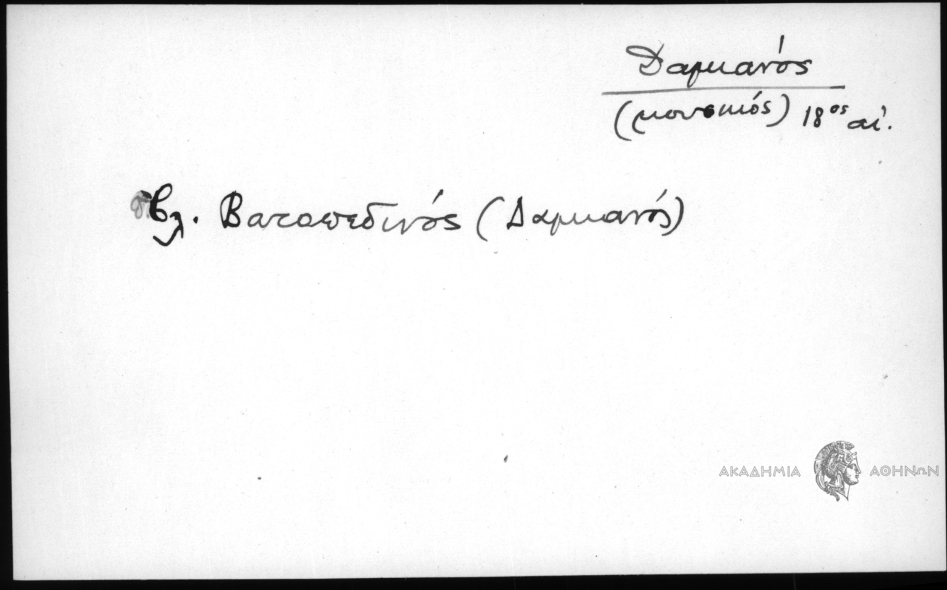 Δαμιανός
(μουσικός) 18ος αἰ.
βλ. Βατοπεδινός (Δαμιανός)
ΑΚΑΔΗΜΙΑ ΑΘΗΝΩΝ